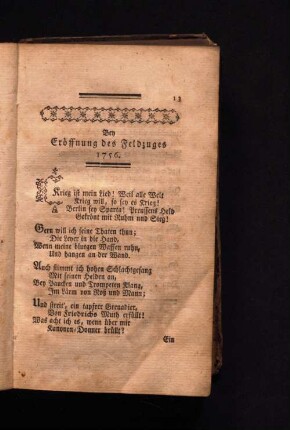 13
Bey
Eröffnung des Feldzuges
1756.
Krieg ist mein Lied! Weil alle Welt
Krieg will, so sey es Krieg!
Berlin sey Sparta! Preussens Held
Gekrönt mit Ruhm und Sieg!
Gern will ich seine Thaten thun;
Die Leyer in die Hand,
Wenn meine blutgen Waffen ruhn,
Und hangen an der Wand.
Auch stimmt ich hohen Schlachtgesang
Mit seinen Helden an,
Bey Paucken und Trompeten Klang,
Im Lärm von Roß und Mann;
Und streit', ein tapfrer Grenadier,
Von Friedrichs Muth erfüllt!
Was acht ich es, wenn über mir
Kanonen-Donner brüllt?
Ein